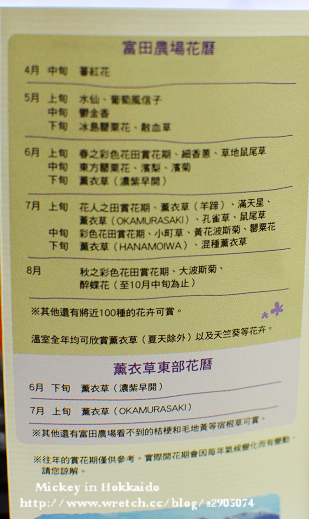 富田農場花曆
4月 中旬 蕃紅花
5月 上旬 水仙、葡萄風信子
中旬 鬱金香
下旬 冰島罌粟花、敵血草
6月 上旬 春之彩色花田賞花期、細香蔥、草地鼠尾草
中旬 東方罌粟花、濱梨、濱菊
下旬 薰衣草（濃紫早開）
7月 上旬 花人之田賞花期、薰衣草（羊蹄）、滿天星、
薰衣草（OKAMURASAKI）、孔雀草、鼠尾草
中旬 彩色花田賞花期、小町草、黃花波斯菊、罌粟花
下旬 薰衣草（HANAMOIWA）、混種薰衣草
8月 秋之彩色花田賞花期、大波斯菊、
醉蝶花（至10月中旬為止）
※其他還有將近100種的花卉可賞。
溫室全年均可欣賞薰衣草（夏天除外）以及天竺葵等花卉。
薰衣草東部花曆
6月 下旬 薰衣草（濃紫早開）
7月 上旬 薰衣草（OKAMURASAKI）
※其他還有富田農場看不到的桔梗和毛地黃等宿根草可賞。
※往年的賞花期僅供參考。實際開花期會因每年氣候變化而有變動，
請您諒解。
Mickey in Hokkaido
http://www.wretch.cc/blog/a2905074